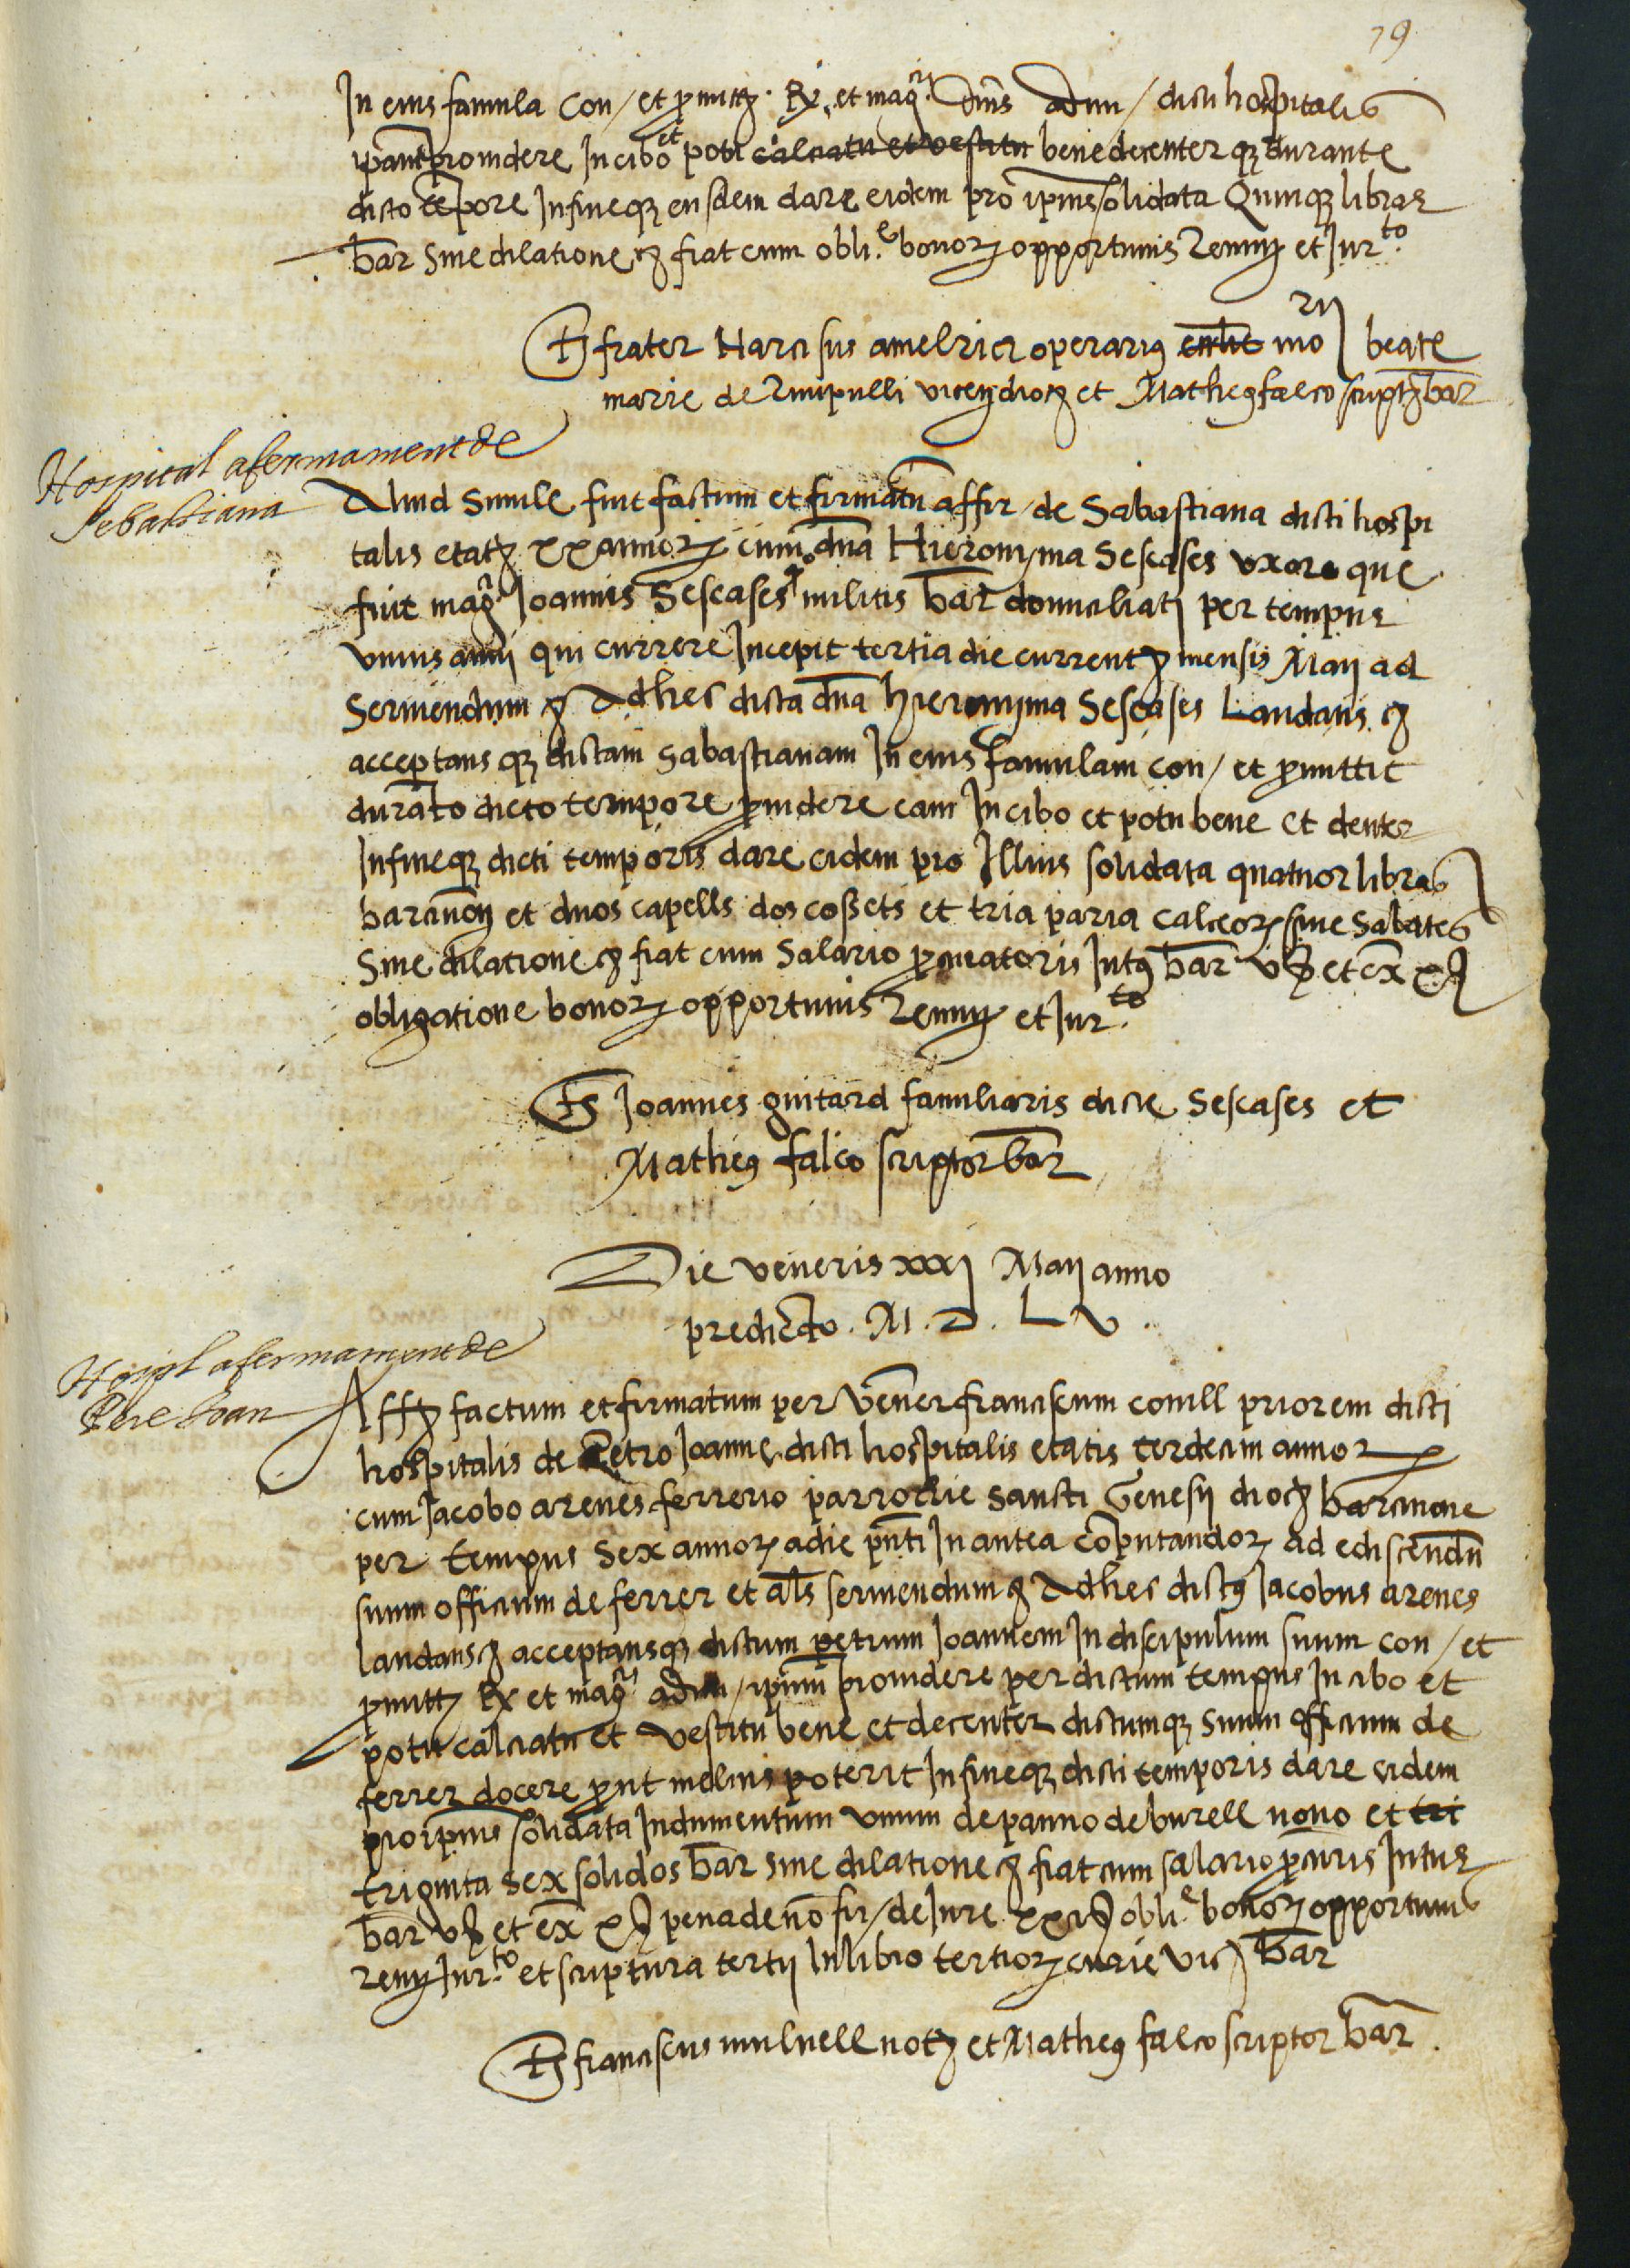 79
In eius famula Con / et promittit Rx. et magcis. Dnis admi / dicti hospitalis
ipam providere In cibo et potu calciatu et vestitu bene decenter qz durante
dicto tempore In fineqz eiusdem dare eidem pro ipius solidata Quinqz libras
bar sine dilatione etc fiat cum oblie. bonorz opportunis Renuny et Jurto.
Ts frater Narcisus amelrici operarius morii beate
marie de Rivipulli vicen dioc et Matheus falco scriptor bar
Hospital afermament de
Sebastiana
Aliud Simile fuit factum et firmatu affir / de Sabastiana dicti hospi
talis etatis xx annorz cum dna Hieronyma Sescases vxore que
fuit magci Joannis Sescases militis bar domiciliati per tempus
vnius anni qui currere Incepit tertia die currentis mensis Maij ad
Serviendum etc Adhec dicta dna hieronyma Sescases Laudans etc
acceptans qz dictam Sabastianam In eius famulam con / et promittit
durato dicto tempore providere eam In cibo et potu bene et denter
Infineqz dicti temporis dare eidem pro Illius solidata quatuor libras
barcinon et duos capells dos cossets et tria paria calceorz sive Sabates
Sine dilatione etc fiat cum Salario procuratoris Intus bar v ß et ex x ß
obligatione bonorz opportunis Renuny et Jurto.
Ts Joannes guitard familiaris dicte Sescases et
Matheus falco scriptor bar
Die veneris xxxj Maij anno
predicto . M . D . L v .
Hospl afermament de
Pere Joan
Affir factum et firmatum per Vener franciscum conill priorem dicti
hospitalis de Petro Joanne dicti hospitalis etatis terdecim annorz
cum Jacobo arenes ferrerio parrochie sancti Genesij dioc barcinone
per tempus Sex annorz adie pnti In antea computandorz ad ediscendu
suum officium de ferrer et als serviendum etc Adhec dictus Jacobus arenes
laudans etc acceptansqz dictum petrum Joannem In discipulum suum con / et
promitt Rx et magcis admi / ipum providere per dictum tempus In cibo et
potu calciatu et vestitu bene et decenter dictumqz suum officium de
ferrer docere prout melius poterit Infineqz dicti temporis dare eidem
pro ipius solidata Indumentum vnum de panno de burell novo et tri
triginta sex solidos bar sine dilatione etc fiat cum salario procuris Intus
bar v ß et ex x ß pena de no fir / de Jure xx ß oblie. bonorz opportunis
reny Jurto. et scriptura tertij In libro tertiorz curie vic bar
Ts franciscus mulnell not et Matheus falco scriptor bar.